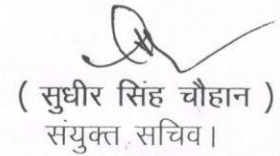 ( सुधीर सिंह चौहान )
संयुक्त सचिव।